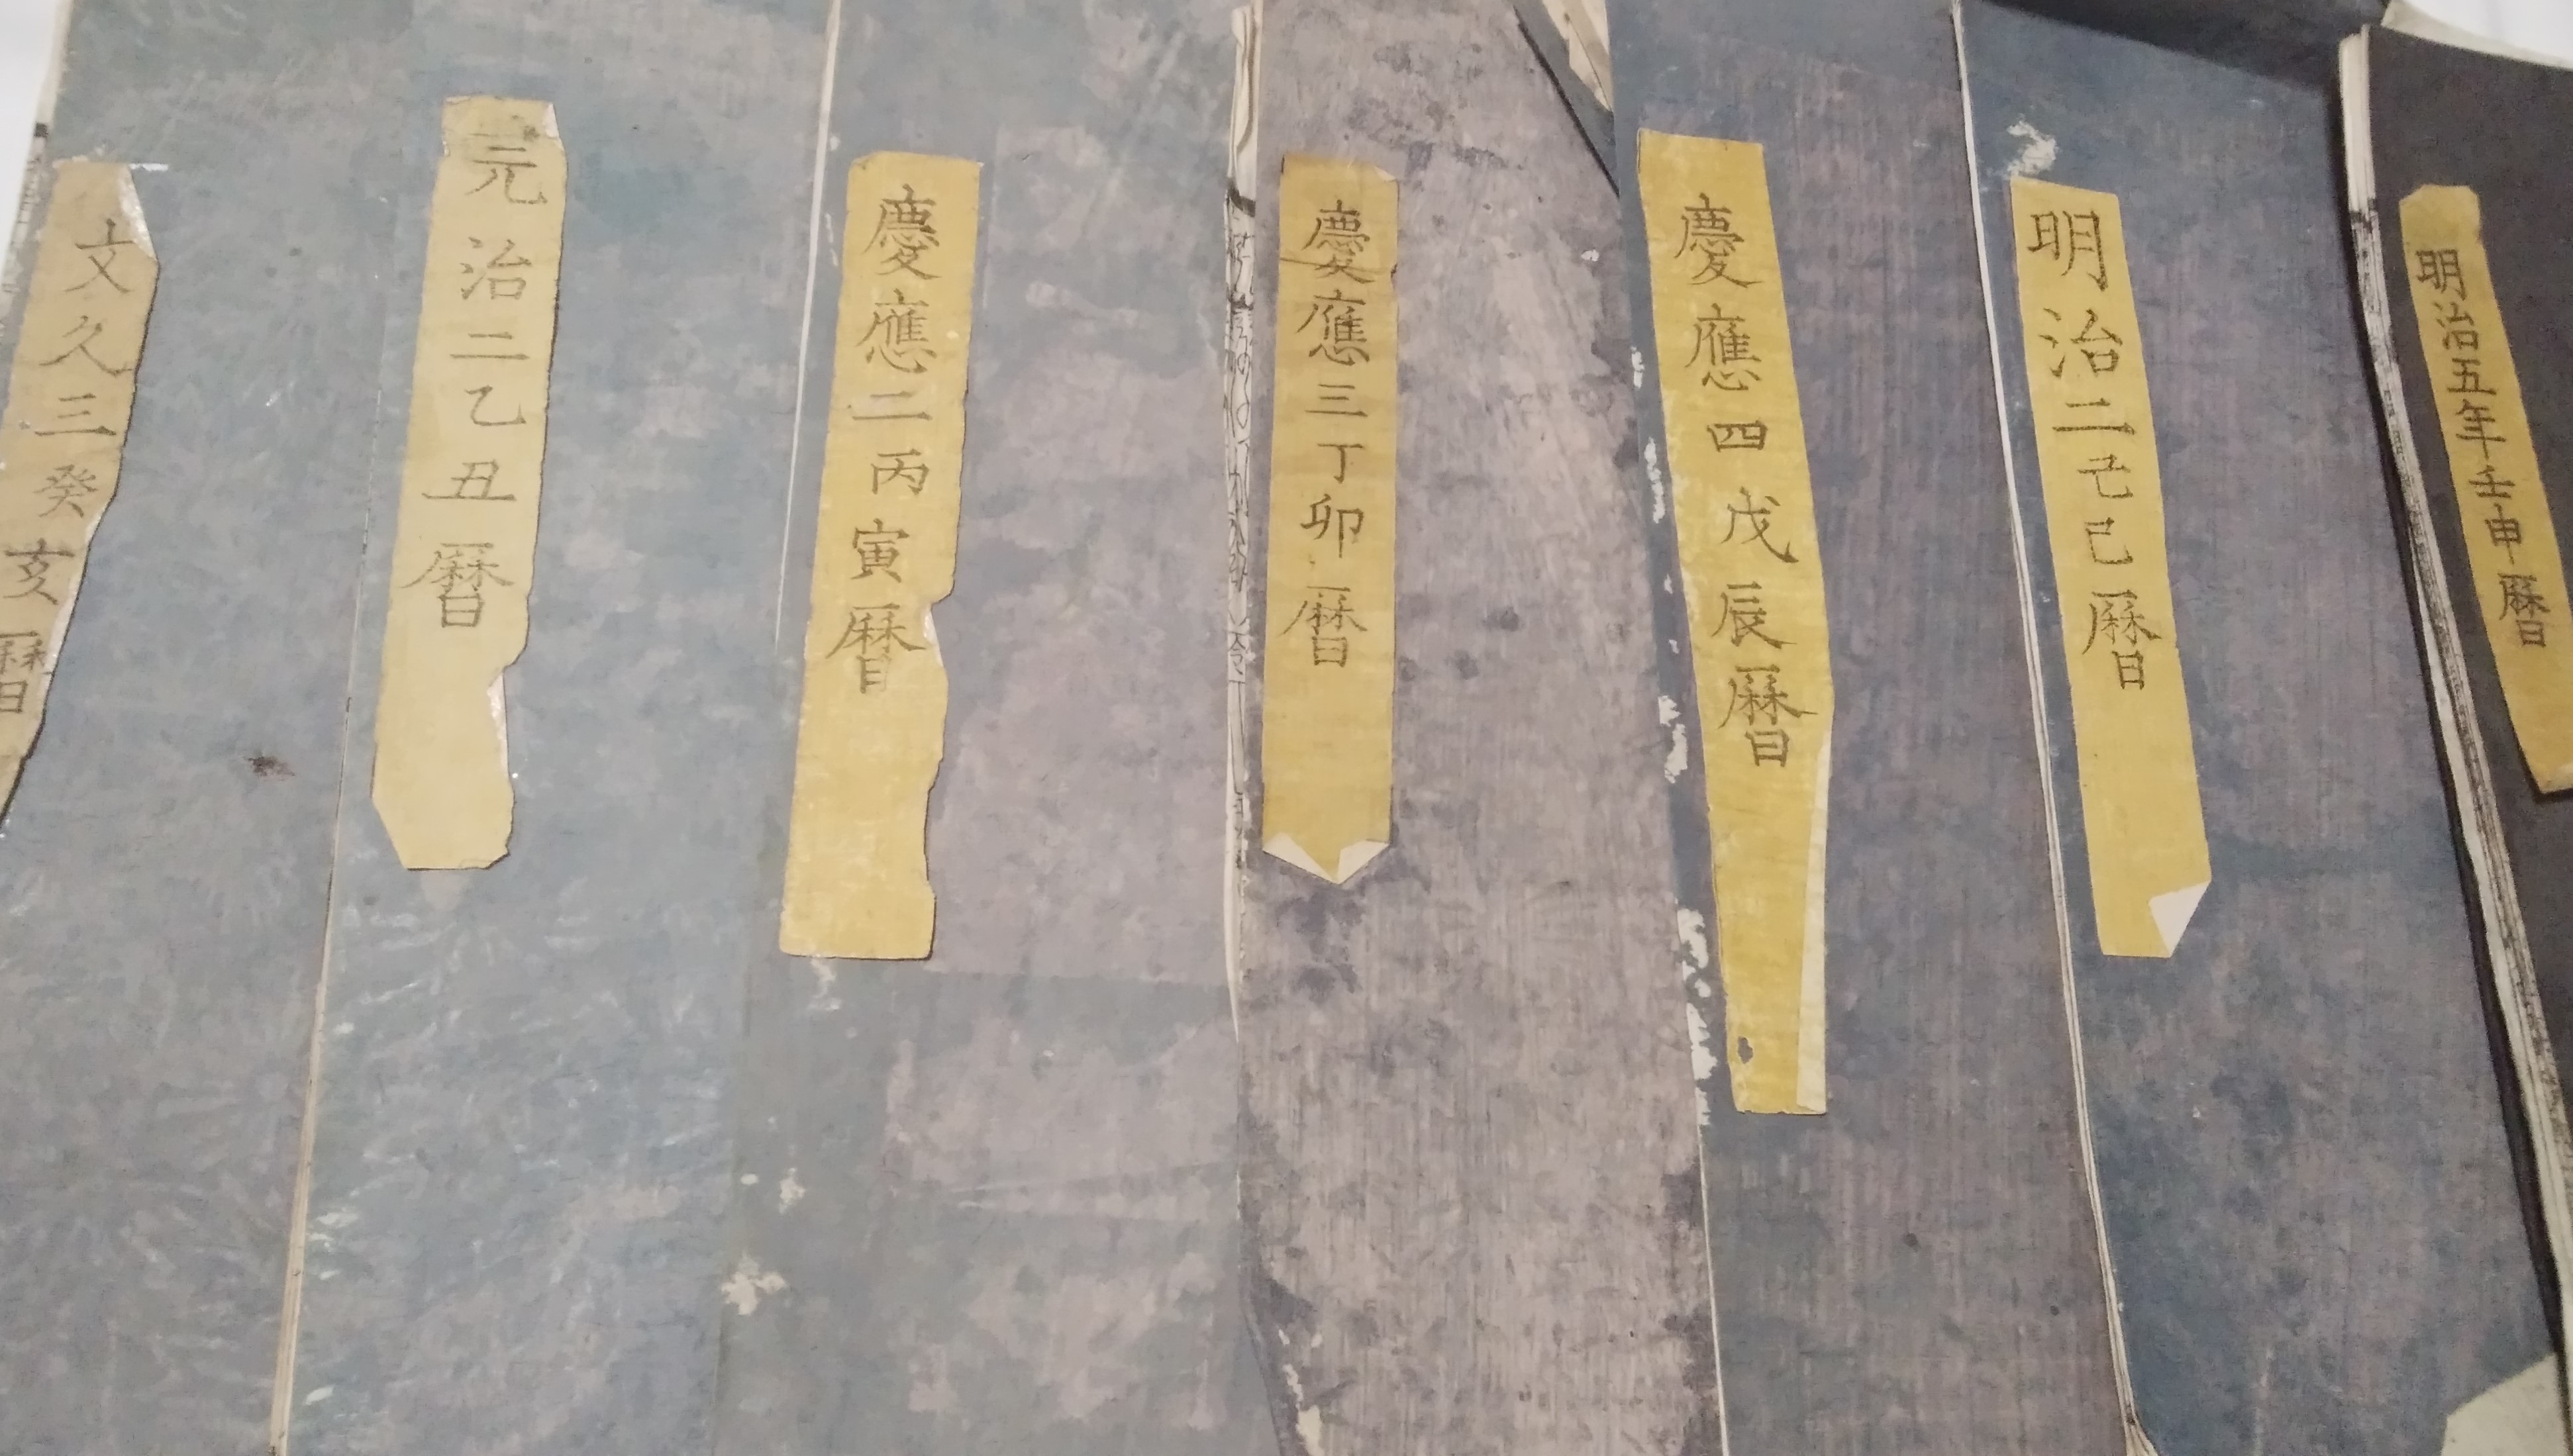 文久三癸亥暦
元治二乙丑暦
慶應二丙寅暦
慶應三丁卯暦
慶應四戊辰暦
明治二己巳暦
明治五年壬申暦